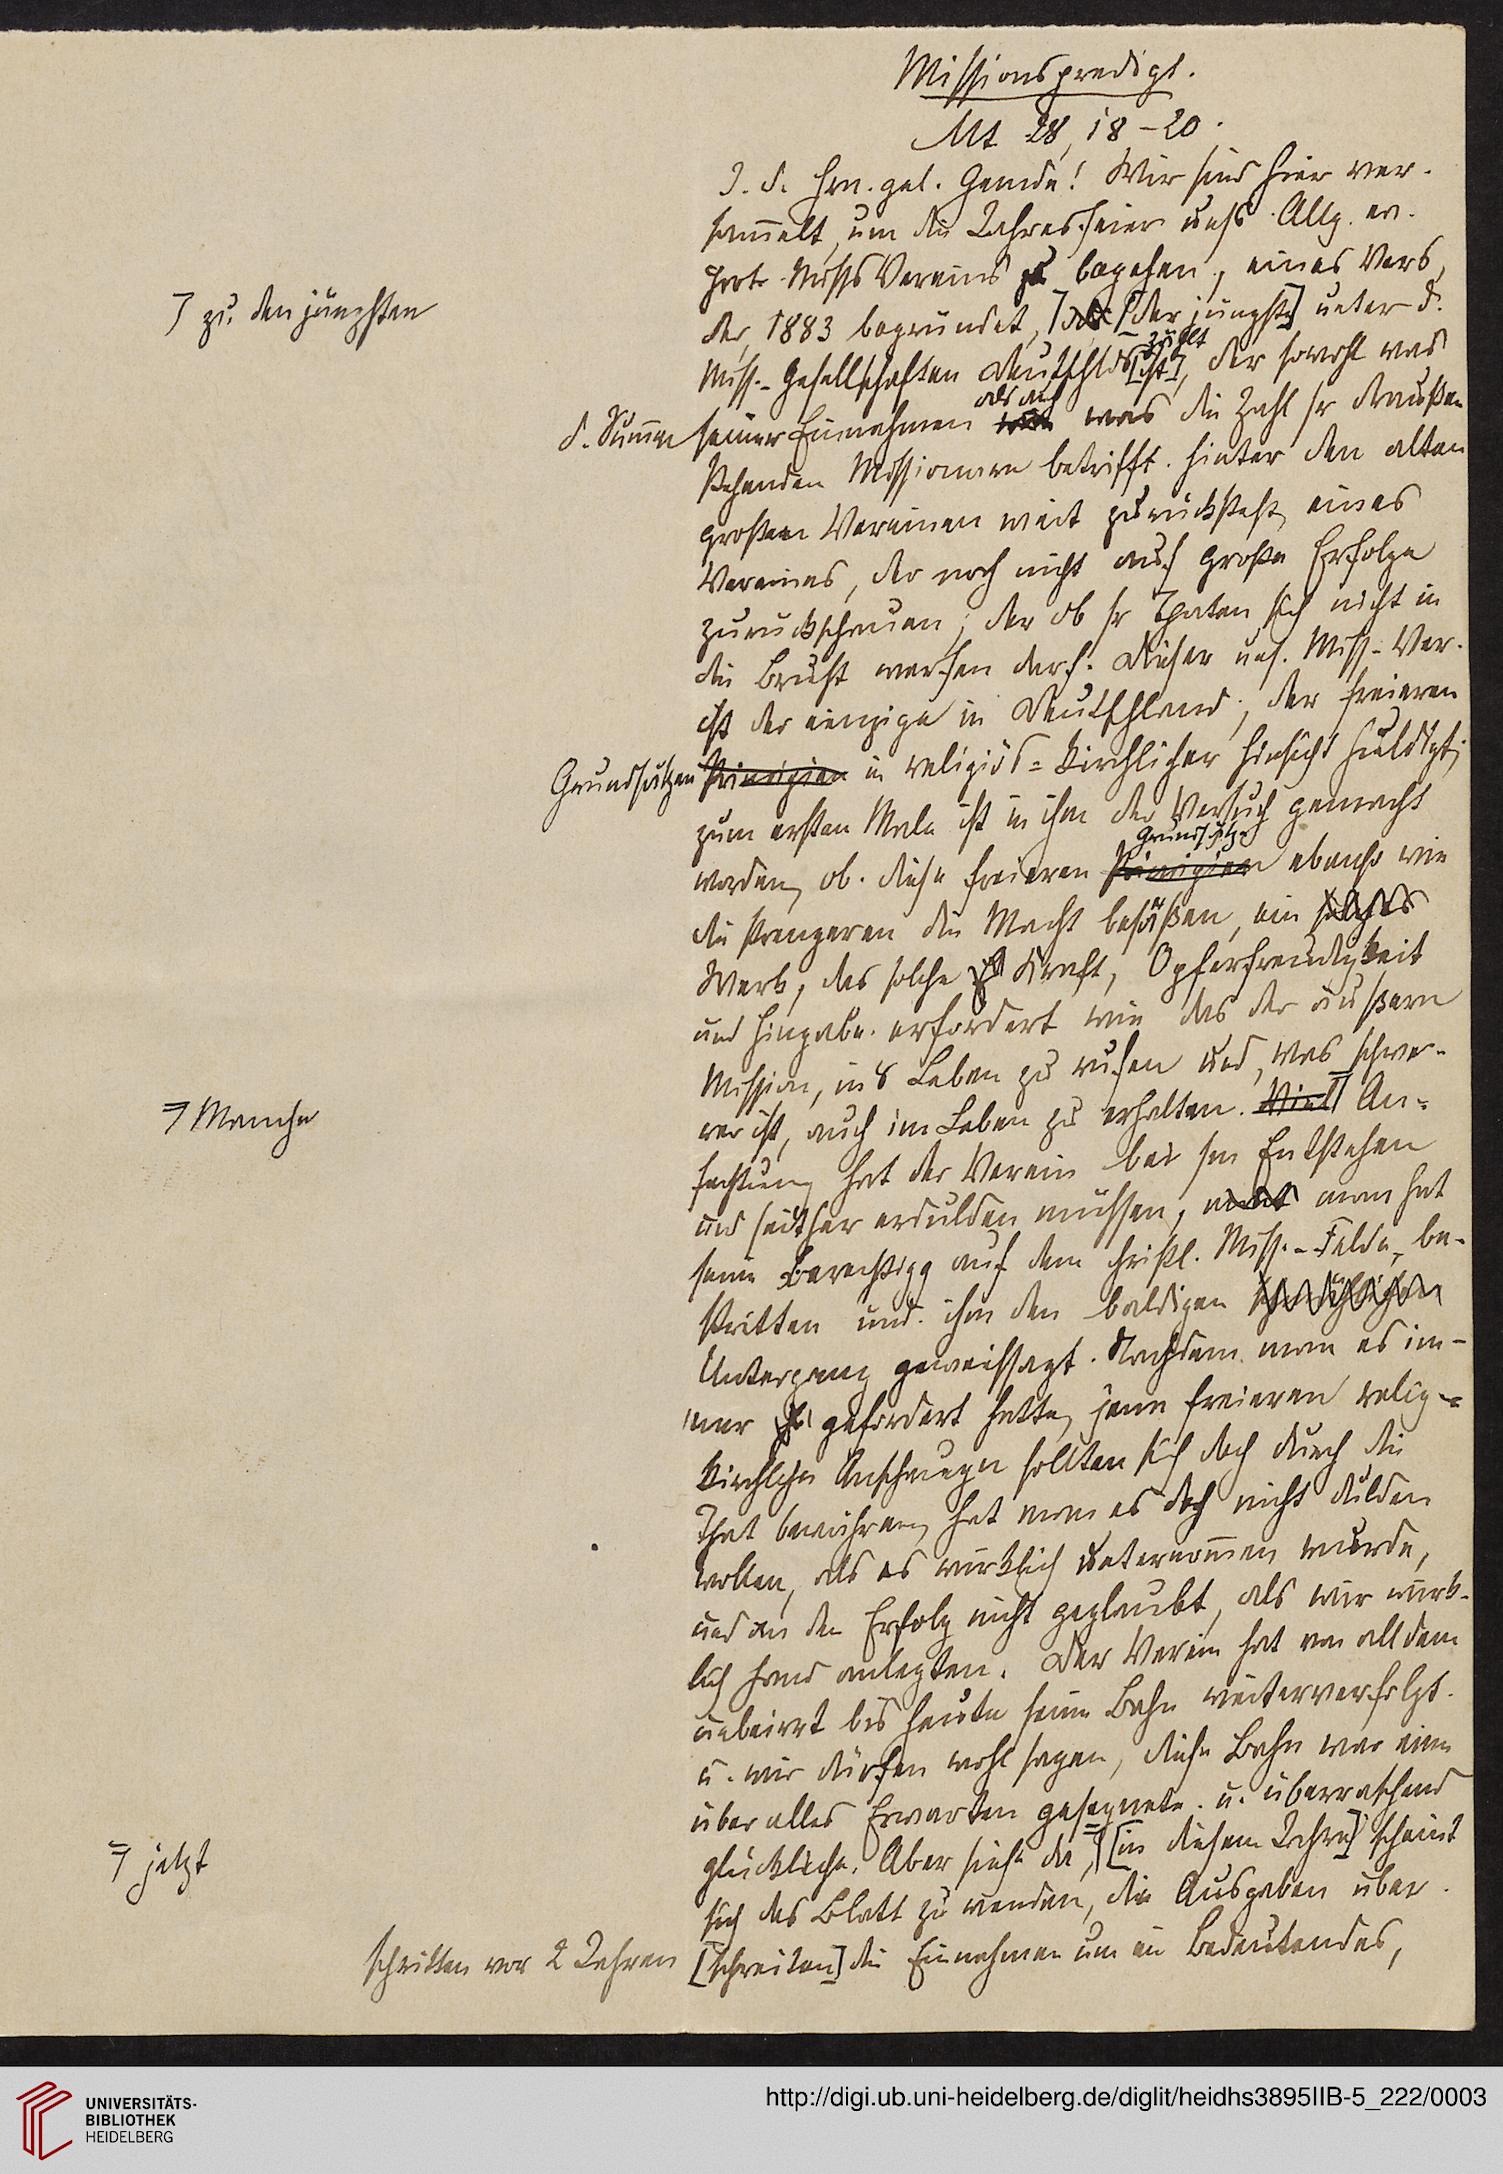 Missionspredigt.
Mt 28, 18-20.
J. d. Hrn. gel. Gemde! Wir sind hier ver-
sam̄elt, um die Jahresfeier uns Allg. ev.
prot. Miss Vereins zu begehen, eines Vers,
⌉ zu den jüngsten
der, 1883 begründet, [der jüngste] unter d.
zählt
Miss.-Gesellschaften Deutschlds [ist], der sowohl was
als auch
d. Sum̄e seiner Einnahmen was die Zahl sr draußen
stehenden Missionare betrifft hinter den alten
großen Vereinen weit zurücksteht, eines
Vereines, der noch nicht auf große Erfolge
zurückschauen, der ob sr Thaten sich nicht in
die Brust werfen darf. Dieser uns. Miss-Ver.
ist der einzige in Deutschland, der freieren
Grundsätzen Prinzipien in religiös-kirchlicher Hinsicht huldigt;
zum ersten Male ist in ihm der Versuch gemacht
Grundsätze
worden, ob diese freieren Prinzipien ebenso wie
die strengeren die Macht besäßen, ein solches
Werk, das solche Kraft, Opferfreudigkeit
und Hingabe erfordert wie das der äußern
Mission, ins Leben zu rufen und, was schwe-
⌉ Manche
rer ist, auch im Leben zu erhalten. Viel An-
fechtung hat der Verein bei sm Entstehen
und seither erdulden müssen, man hat
seine Berechtigg auf dem christl. Miss.-Felde be-
stritten und ihm den baldigen
Untergang geweissagt. Nachdem man es im-
mer gefordert hatte, jene freieren relig-
kirchlichen Anschauungen sollten sich doch durch die
That bewähren, hat man es doch nicht dulden
wollen, als es wirklich unternom̄en wurde,
und an den Erfolg nicht geglaubt, als wir wirk-
lich Hand anlegten. Der Verein hat von all dem
unbeirrt bis heute seine Bahn weiterverfolgt
u. wir dürfen wohl sagen, diese Bahn war eine
über alles Erwarten gesegnete u. überraschend
⌉ jetzt
glückliche. Aber siehe da, [in diesem Jahre] scheint
sich das Blatt zu wenden, die Ausgaben über-
schritten vor 2 Jahren [schreiten] die Einnahmen um ein Bedeutendes,
UNIVERSITÄTS-
BIBLIOTHEK
HEIDELBERG
http://digi.ub.uni-heidelberg.de/diglit/heidhs3895IIB-5_222/0003